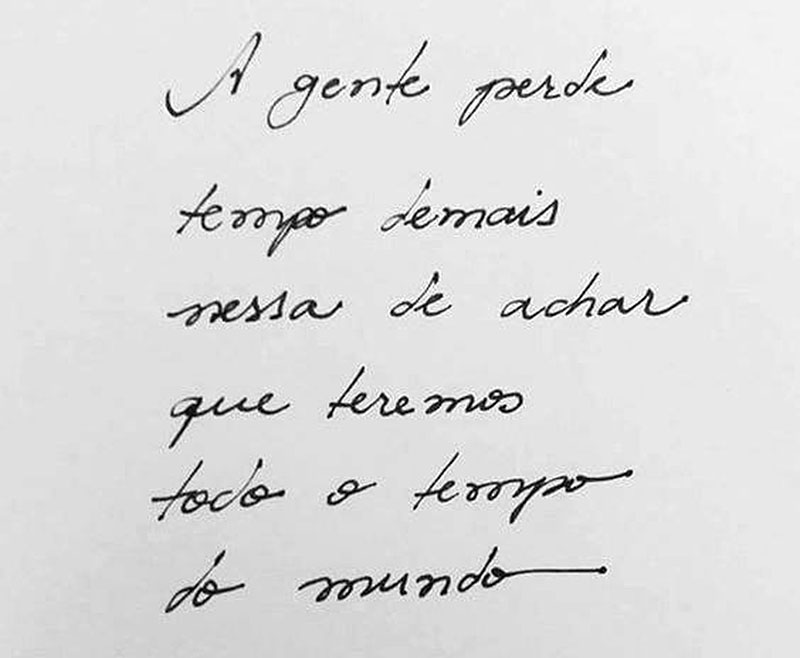 A gente perde
tempo demais
nessa de achar
que teremos
todo o tempo
do mundo